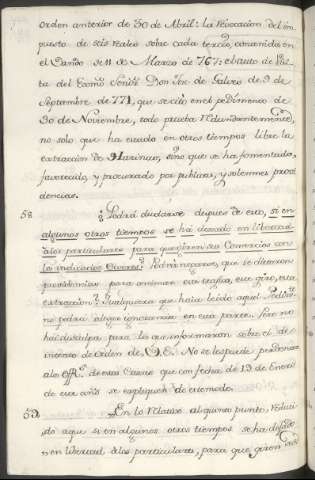 orden anterior de 30 de Abril: la revocacion del im
puesto de seis reales sobre cada tercio, contenidos en
el Vando de 11 de Marzo de 767: el auto de Visi
ta del Exmô. Señôr Don Jph. de Galvez de 9 de
Septembre de 771, que se citó en el pedimento de
30 de Noviembre, todo prueba redundantemente,
no solo que ha estado en otros tiempos libre la
extraccion de Harinas, sino que se ha fomentado,
favorecido, y procurado por publicas, y solemnes provi
dencias.
58. ¿Podrá dudarse despues de esto, si en
algunos otros tiempos se ha dexado en libertad
a los particulares para que giren su Comercio con
lo indicado
Podrá negarse, que se dieron
providencias para animar este trafico, este giro, esta
extraccion? Qualquiera que haia leido aquel Pedim.to
no podrá alegar ignorancia en esta parte. Pero no
hai disculpa para los que informaron sobre el di
mento de orden de V. E. No se les puede perdonar
a los de estas Caxas que con fecha de 13 de Enero
de este año se expliquen de este modo.
59. En lo relativo al quinto punto, reduci
do aqui si en algunos otros tiempos se ha dexado
en libertad a los particulares, para que giren